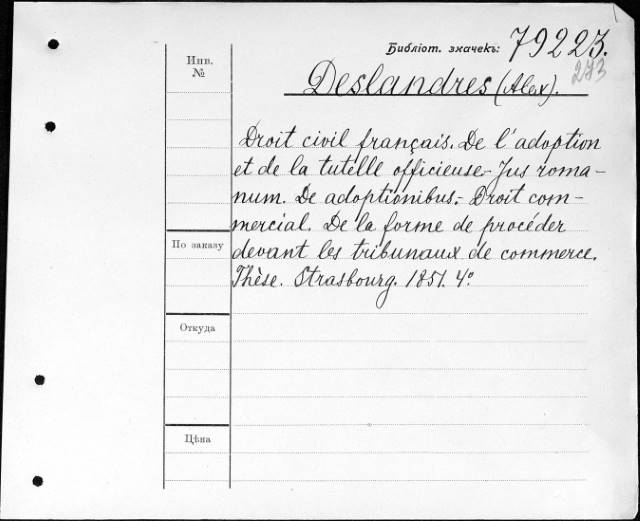 Библіот. значекъ: 79223.
273
Инв.
№
Deslandres (Alex).
Droit civil français. De l'adoption
et de la tutelle officieuse.- Jus roma-
num. De adoptionibus.- Droit com-
mercial. De la forme de procéder
devant les tribunaux de commerce.
Thèse. Strasbourg. 1851. 4º.
По заказу
Откуда
Цѣна